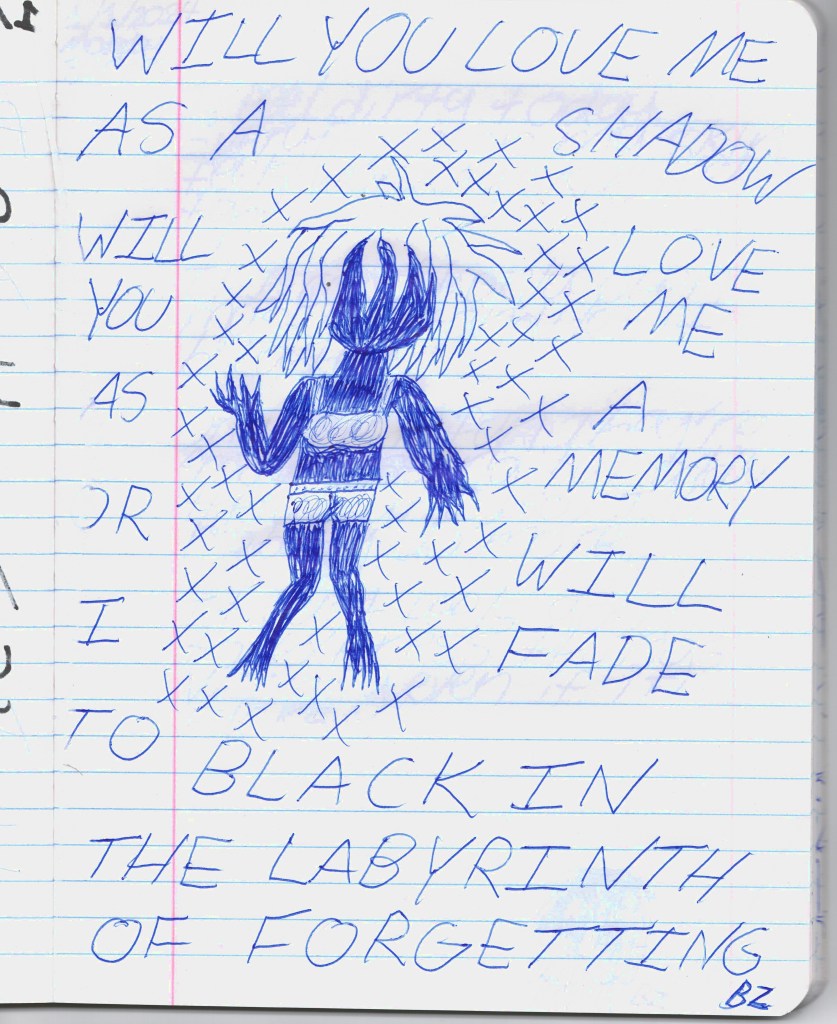 WILL YOU LOVE ME
AS A SHADOW
WILL LOVE
YOU ME
AS A
OR MEMORY
WILL
I FADE
TO
BLACK IN
THE LABYRINTH
OF FORGETTING
BZ